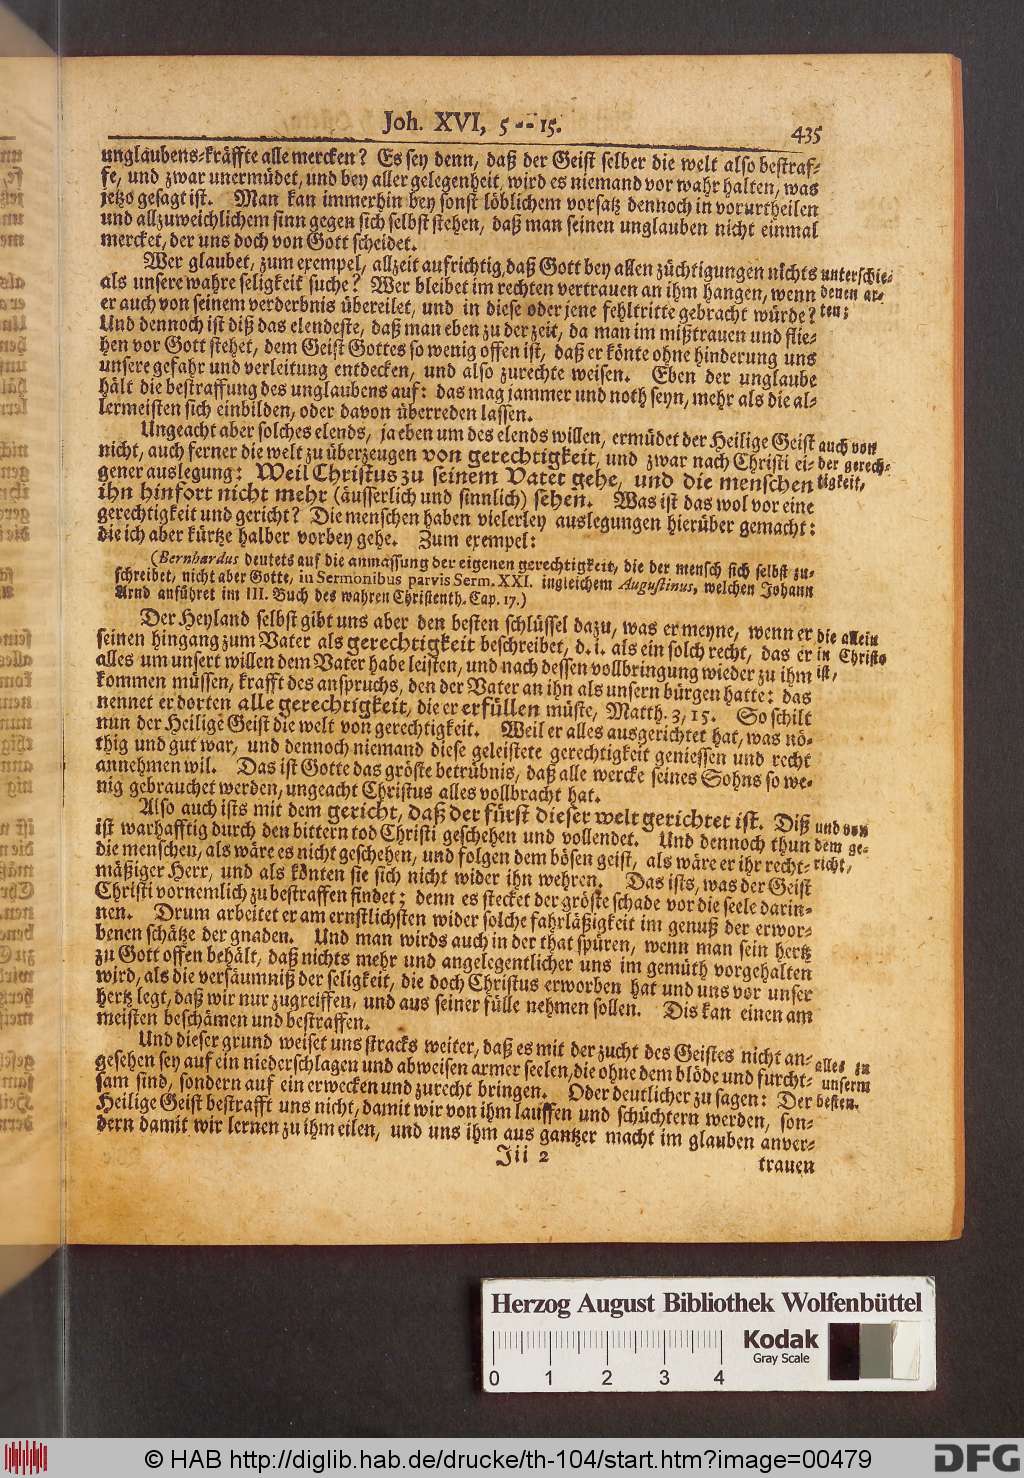 Joh. XVI, 5 -- 15. 435
unglaubens-kräffte alle mercken? Es sey denn, daß der Geist selber die welt also bestraf-
fe, und zwar unermüdet, und bey aller gelegenheit, wird es niemand vor wahr halten, was
jetzo gesagt ist. Man kan immerhin bey sonst löblichem vorsatz dennoch in vorurtheilen
und allzuweichlichem sinn gegen sich selbst stehen, daß man seinen unglauben nicht einmal
mercket, der uns doch von Gott scheidet.
Wer glaubet, zum exempel, allzeit aufrichtig, daß Gott bey allen züchtigungen nichts unterschie-
als unsere wahre seligkeit suche? Wer bleibet im rechten vertrauen an ihm hangen, wenn denen ar-
er auch von seinem verderbnis übereilet, und in diese oder jene fehltritte gebracht würde? ten;
Und dennoch ist diß das elendeste, daß man eben zu der zeit, da man im mißtrauen und flie-
hen vor Gott stehet, dem Geist Gottes so wenig offen ist, daß er könte ohne hinderung uns
unsere gefahr und verleitung entdecken, und also zurechte weisen. Eben der unglaube
hält die bestraffung des unglaubens auf: das mag jammer und noth seyn, mehr als die al-
lermeisten sich einbilden, oder davon überreden lassen.
Ungeacht aber solches elends, ja eben um des elends willen, ermüdet der Heilige Geist auch von
nicht, auch ferner die welt zu überzeugen von gerechtigkeit, und zwar nach Christi ei- der gerech-
gener auslegung: Weil Christus zu seinem Vater gehe, und die menschen tigkeit,
ihn hinfort nicht mehr (äusserlich und sinnlich) sehen. Was ist das wol vor eine
gerechtigkeit und gericht? Die menschen haben vielerley auslegungen hierüber gemacht:
die ich aber kürtze halber vorbey gehe. Zum exempel:
(Bernhardus deutets auf die anmassung der eigenen gerechtigkeit, die der mensch sich selbst zu-
schreibet, nicht aber Gotte, in Sermonibus parvis Serm. XXI. ingleichem Augustinus, welchen Johann
Arnd anführet im III. Buch des wahren Christenth. Cap. 17.)
Der Heyland selbst gibt uns aber den besten schlüssel dazu, was er meyne, wenn er die allein
seinen hingang zum Vater als gerechtigkeit beschreibet, d. i. als ein solch recht, das er in Christo
alles um unsert willen dem Vater habe leisten, und nach dessen vollbringung wieder zu ihm ist,
kommen müssen, krafft des anspruchs, den der Vater an ihn als unsern bürgen hatte: das
nennet er dorten alle gerechtigkeit, die er erfüllen müste, Matth. 3, 15. So schilt
nun der Heilige Geist die welt von gerechtigkeit. Weil er alles ausgerichtet hat, was nö-
thig und gut war, und dennoch niemand diese geleistete gerechtigkeit geniessen und recht
annehmen wil. Das ist Gotte das gröste betrübnis, daß alle wercke seines Sohns so we-
nig gebrauchet werden, ungeacht Christus alles vollbracht hat.
Also auch ists mit dem gericht, daß der fürst dieser welt gerichtet ist. Diß und von
ist warhafftig durch den bittern tod Christi geschehen und vollendet. Und dennoch thun dem ge-
die menschen, als wäre es nicht geschehen, und folgen dem bösen geist, als wäre er ihr recht- richt,
mäßiger Herr, und als könten sie sich nicht wider ihn wehren. Das ists, was der Geist
Christi vornemlich zu bestraffen findet; denn es stecket der gröste schade vor die seele darin-
nen. Drum arbeitet er am ernstlichsten wider solche fahrläßigkeit im genuß der erwor-
benen schätze der gnaden. Und man wirds auch in der that spüren, wenn man sein hertz
zu Gott offen behält, daß nichts mehr und angelegentlicher uns im gemüth vorgehalten
wird, als die versäumniß der seligkeit, die doch Christus erworben hat und uns vor unser
hertz legt, daß wir nur zugreiffen, und aus seiner fülle nehmen sollen. Dis kan einen am
meisten beschämen und bestraffen.
Und dieser grund weiset uns stracks weiter, daß es mit der zucht des Geistes nicht an-
gesehen sey auf ein niederschlagen und abweisen armer seelen, die ohne dem blöde und furcht- alles zu
sam sind, sondern auf ein erwecken und zurecht bringen. Oder deutlicher zu sagen: Der unserm
Heilige Geist bestrafft uns nicht, damit wir von ihm lauffen und schüchtern werden, son- besten.
dern damit wir lernen zu ihm eilen, und uns ihm aus gantzer macht im glauben anver-
Jii 2 trauen
Herzog August Bibliothek Wolfenbüttel
0 1 2 3 4
Kodak
Gray Scale
© HAB http://diglib.hab.de/drucke/th-104/start.htm?image=00479
DFG